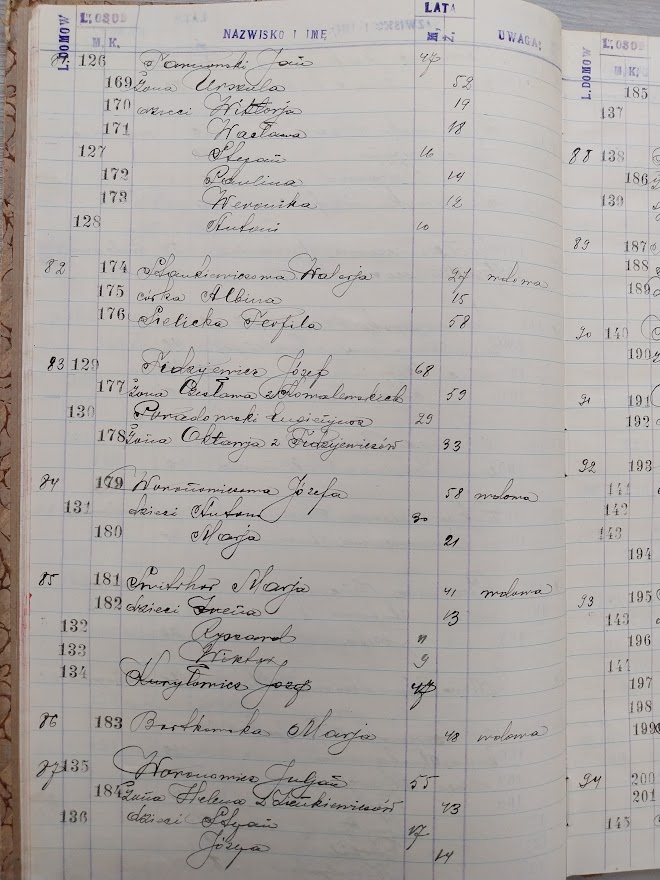 L. DOMÓW L. OSÓB NAZWISKO I IMĘ LATA UWAGA
M. K. M. Ż.
126 Jan 47
169 żona Urszula 52
170 dzieci Wiktorja 19
171 Wacława 18
127 Stefan 16
172 Paulina 14
173 Weronika 12
128 Antoni 10
82 174 Stankiewiczowa Walerja 27 wdowa
175 córka Albina 15
176 Sielicka Teofila 58
83 129 Fidzyjewicz Józef 68
177 żona Czesława z 59
130 Poradowski 29
178 żona Oktawja z Fidzyjewiczów 33
84 179 Woronowiczowa Józefa 58 wdowa
131 dzieci Antoni 30
180 Marja 21
85 181 Marja 41 wdowa
182 dzieci Irena 13
132 Ryszard 11
133 Wiktor 9
134 Kuryłowicz Józef 47
86 183 Bortkowska Marja 48 wdowa
87 135 Woronowicz Juljan 55
184 żona Helena z Sienkiewiczów 43
136 dzieci Stefan 17
Józefa 14
L. DOMÓW L. OSÓB
M. K.
185
137
88 138
186
139
89 187
188
189
90 140
190
91 191
192
92 193
141
142
143
194
93 195
143
196
144
197
198
199
94 200
201
145